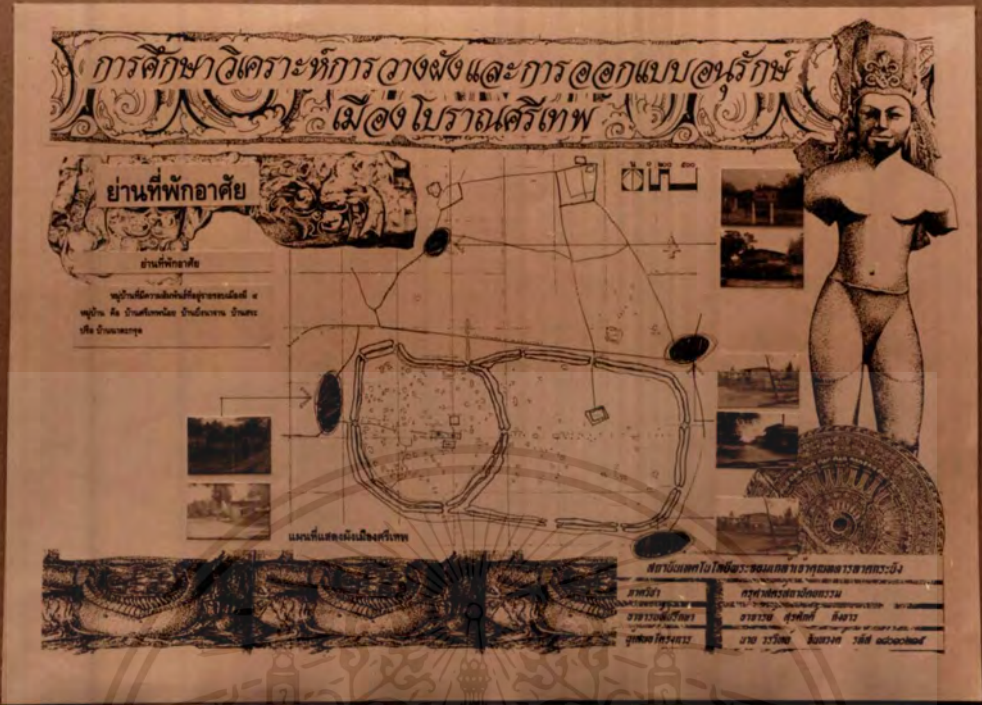 การศึกษาวิเคราะห์การวางผังและการออกแบบอนุรักษ์
เมืองโบราณศรีเทพ
ย่านที่พักอาศัย
ย่านที่พักอาศัย
หมู่บ้านที่มีความสัมพันธ์ที่อยู่รายรอบเมืองมี ๔
หมู่บ้าน คือ บ้านศรีเทพน้อย บ้านบึงนาจาน บ้านสระ
ปรือ บ้านนาตะกรุด
แผนที่แสดงผังเมืองศรีเทพ
สถาบันเทคโนโลยีพระจอมเกล้าเจ้าคุณทหารลาดกระบัง
ภาควิชา ครุศาสตร์สถาปัตยกรรม
อาจารย์ที่ปรึกษา อาจารย์ สุรศักดิ์
นาย รหัส